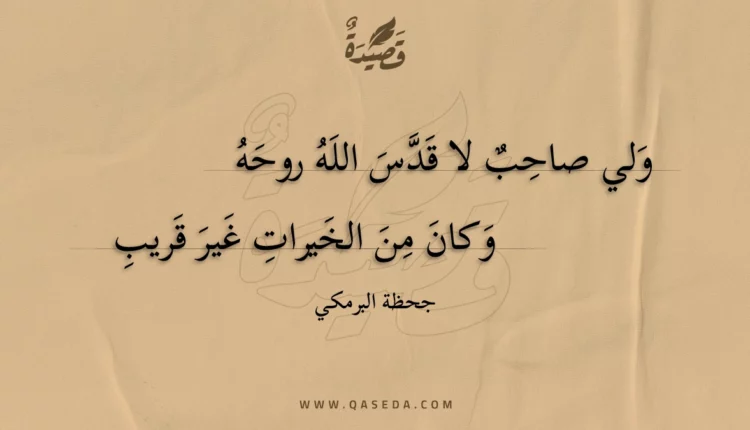 قَصِيْدَةٌ
وَلي صاحِبٌ لا قَدَّسَ اللَهُ روحَهُ
وَكانَ مِنَ الخَيراتِ غَيرَ قَريبِ
جحظة البرمكي
WWW.QASEDA.COM